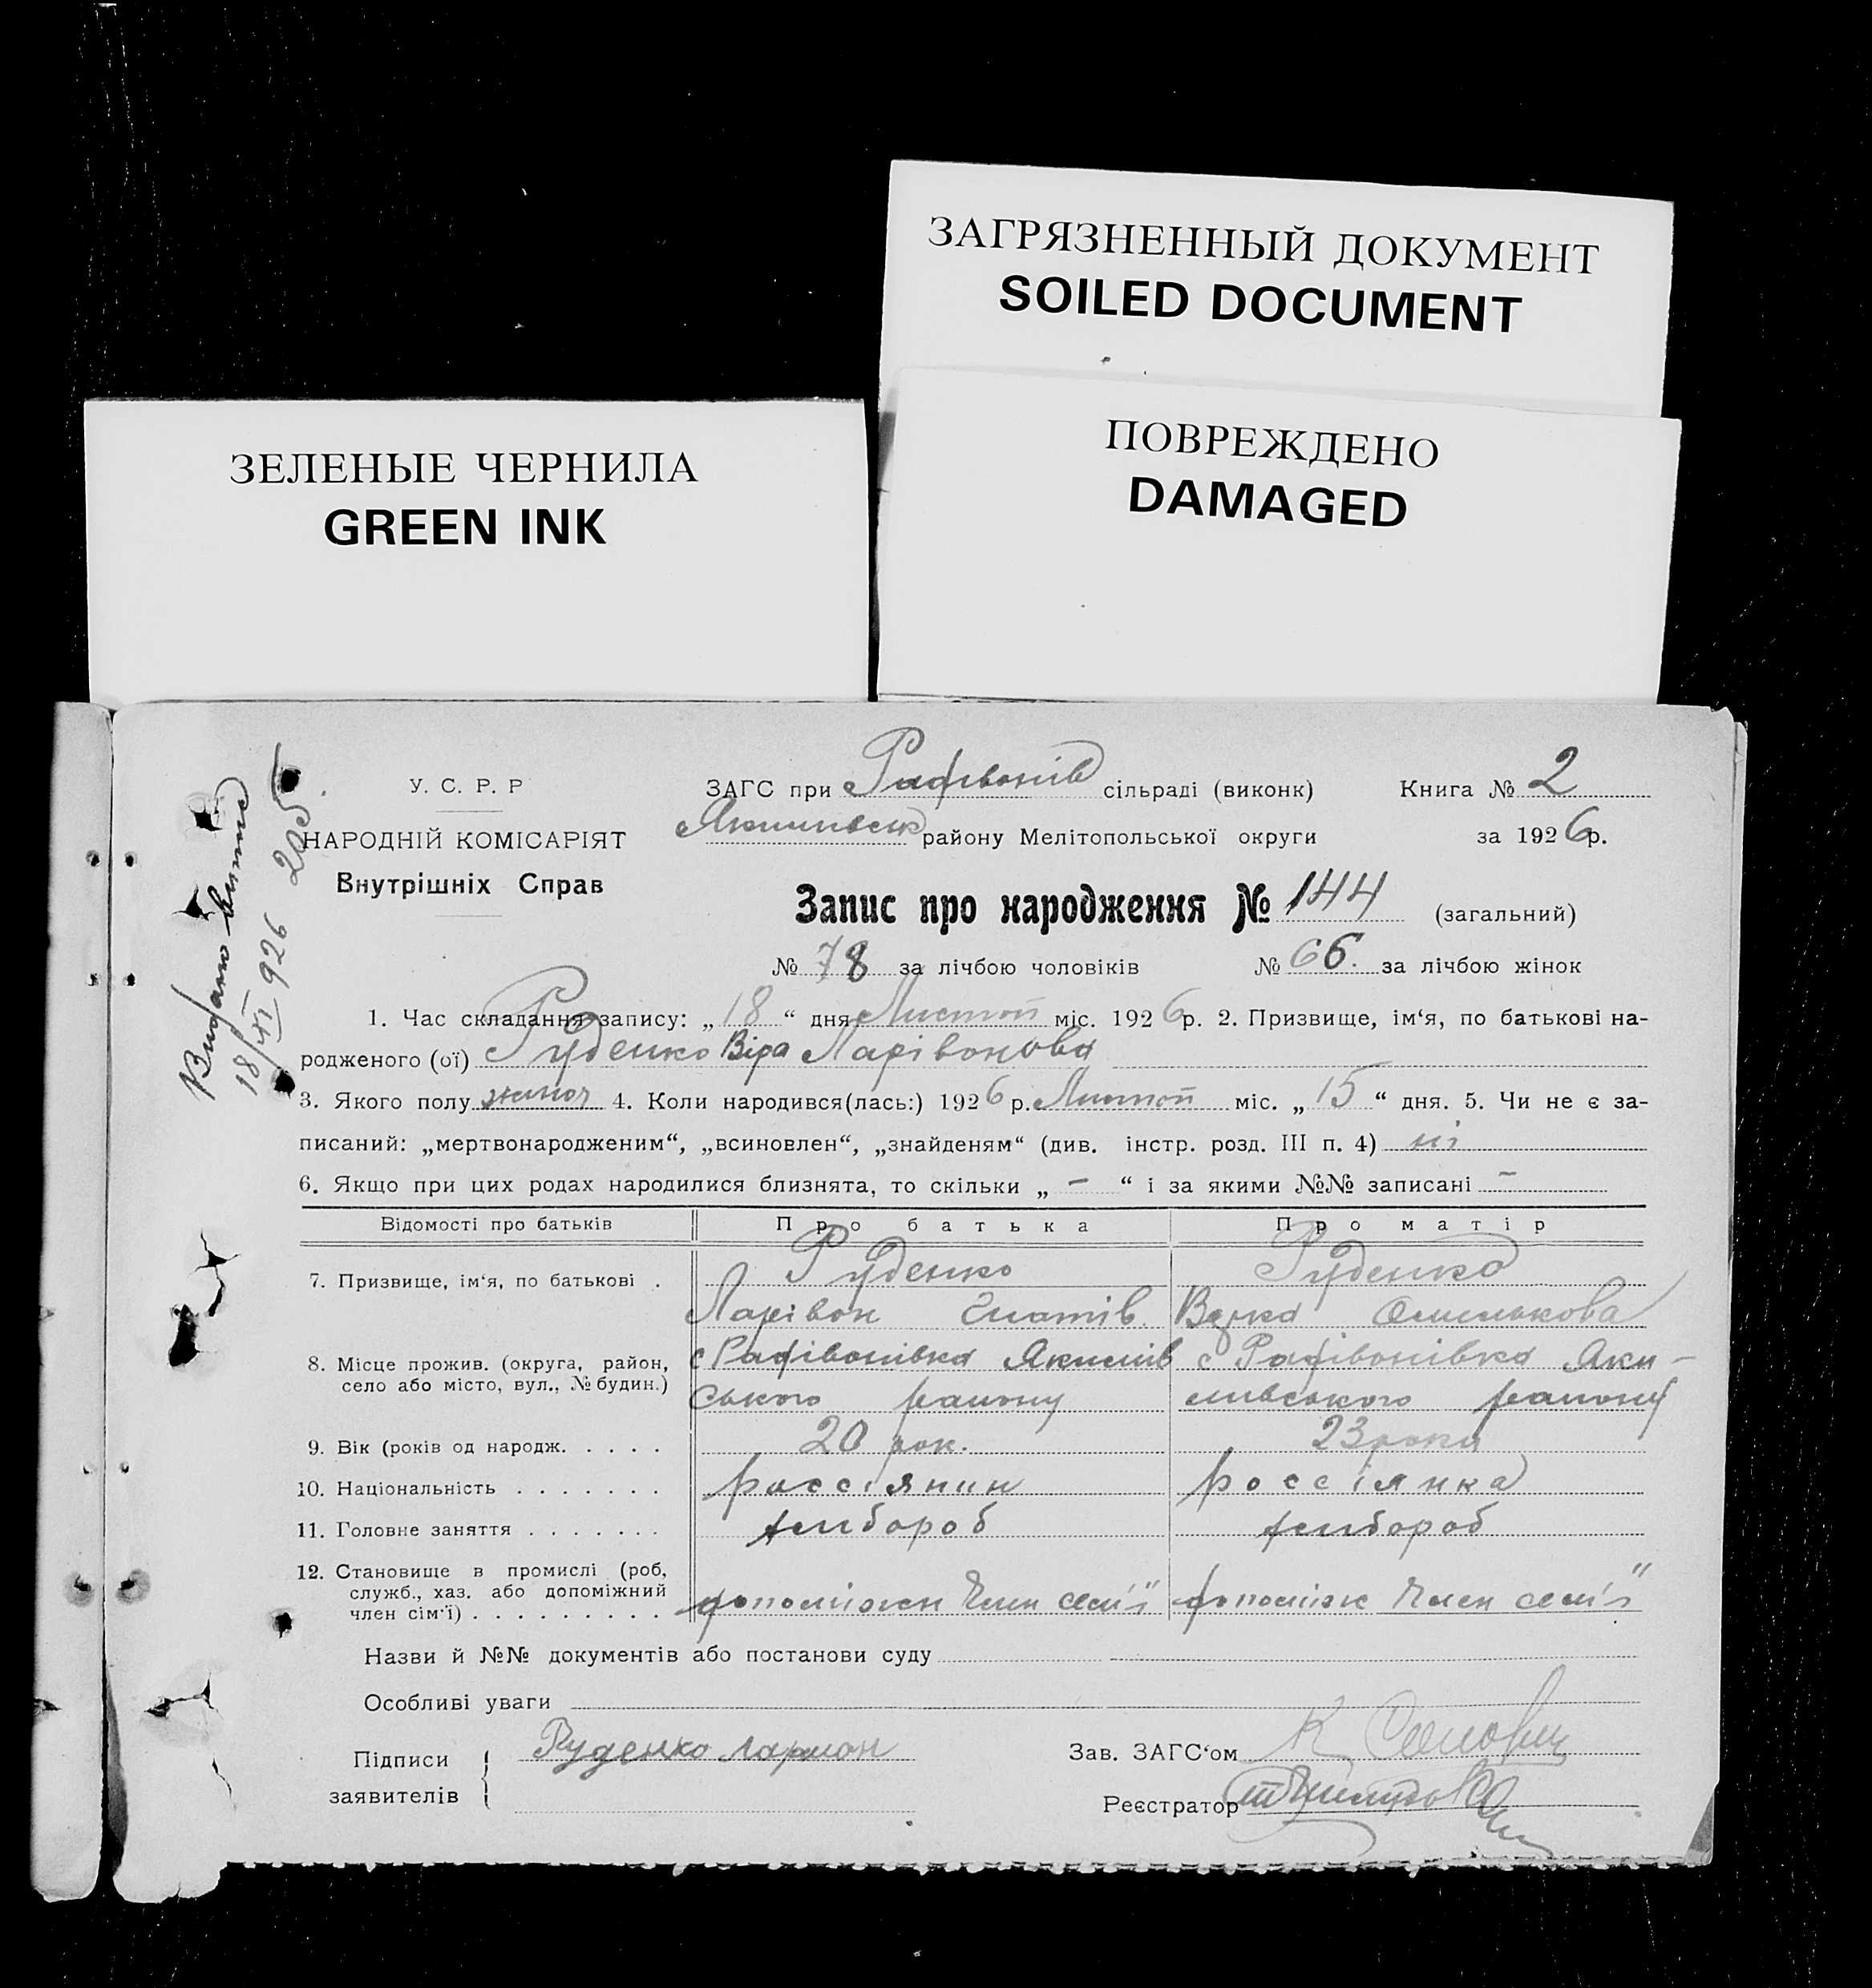 ЗАГРЯЗНЕННЫЙ ДОКУМЕНТ
SOILED DOCUMENT
ЗЕЛЕНЫЕ ЧЕРНИЛА
GREEN INK
ПОВРЕЖДЕНО
DAMAGED
Видано витяг
18/XI 926 205
У. С. Р. Р
НАРОДНІЙ КОМІСАРІЯТ
Внутрішніх Справ
ЗАГС при Радівонів сільраді (виконк) Книга № 2
Якимівськ району Мелітопольської округи за 1926р.
Запис про народження № 144 (загальний)
№ 78 за лічбою чоловіків № 66. за лічбою жінок
1. Час складання запису: „18“ дня Листоп міс. 1926р. 2. Призвище, ім‘я, по батькові на-
родженого (ої) Руденко Віра Ларівонова
3. Якого полу жиноч 4. Коли народився(лась:) 1926р. Листоп міс. „15“ дня. 5. Чи не є за-
писаний: „мертвонародженим“, „всиновлен“, „знайденям“ (див. інстр. розд. III п. 4) ні
6. Якщо при цих родах народилися близнята, то скільки „ - “ і за якими №№ записані -
Відомості про батьків Про батька Про матір
7. Призвище, ім‘я, по батькові . Руденко Руденко
Ларівон Гнатів
8. Місце прожив. (округа, район, село або місто, вул., № будин.) с Радівонівка Якимів с Радівонівка Яки-
ського району мивського району
9. Вік (років од народж. . . . . 20 рок. 23 роки
10. Національність . . . . . . . россіянин россіянка
11. Головне заняття . . . . . . . хлибороб хлибороб
12. Становище в промислі (роб, служб., хаз. або допоміжний член сім‘ї) . . . . . . . . . допоміжн Член семʼї" допоміж Член семʼї"
Назви й №№ документів або постанови суду
Особливі уваги
Підписи заявителів Руденко Ларион
Зав. ЗАГС‘ом
Реєстратор